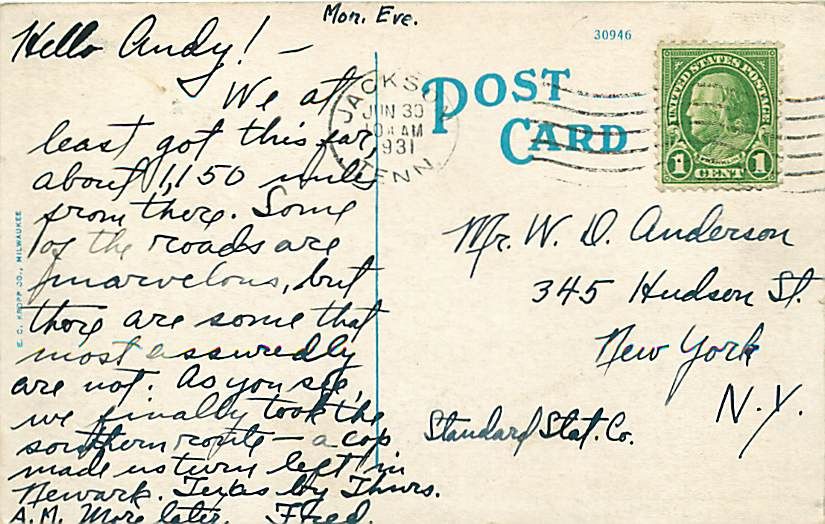 Mon. Eve.
Hello Andy! —
We at
least got this far,
about 1,150 miles
from there. Some
of the roads are
marvelous, but
there are some that
most assuredly
are not. As you see,
we finally took the
southern route — a cop
made us turn left in
Newark. Texas by Thurs.
A.M. More later. Fred.
E. C. KROPP CO., MILWAUKEE
30946
POST
CARD
JACKSON
JUN 30
10 AM
1931
TENN
UNITED STATES POSTAGE
FRANKLIN
1 CENT 1
Mr. W. D. Anderson
345 Hudson St.
New York
N.Y.
Standard Stat. Co.